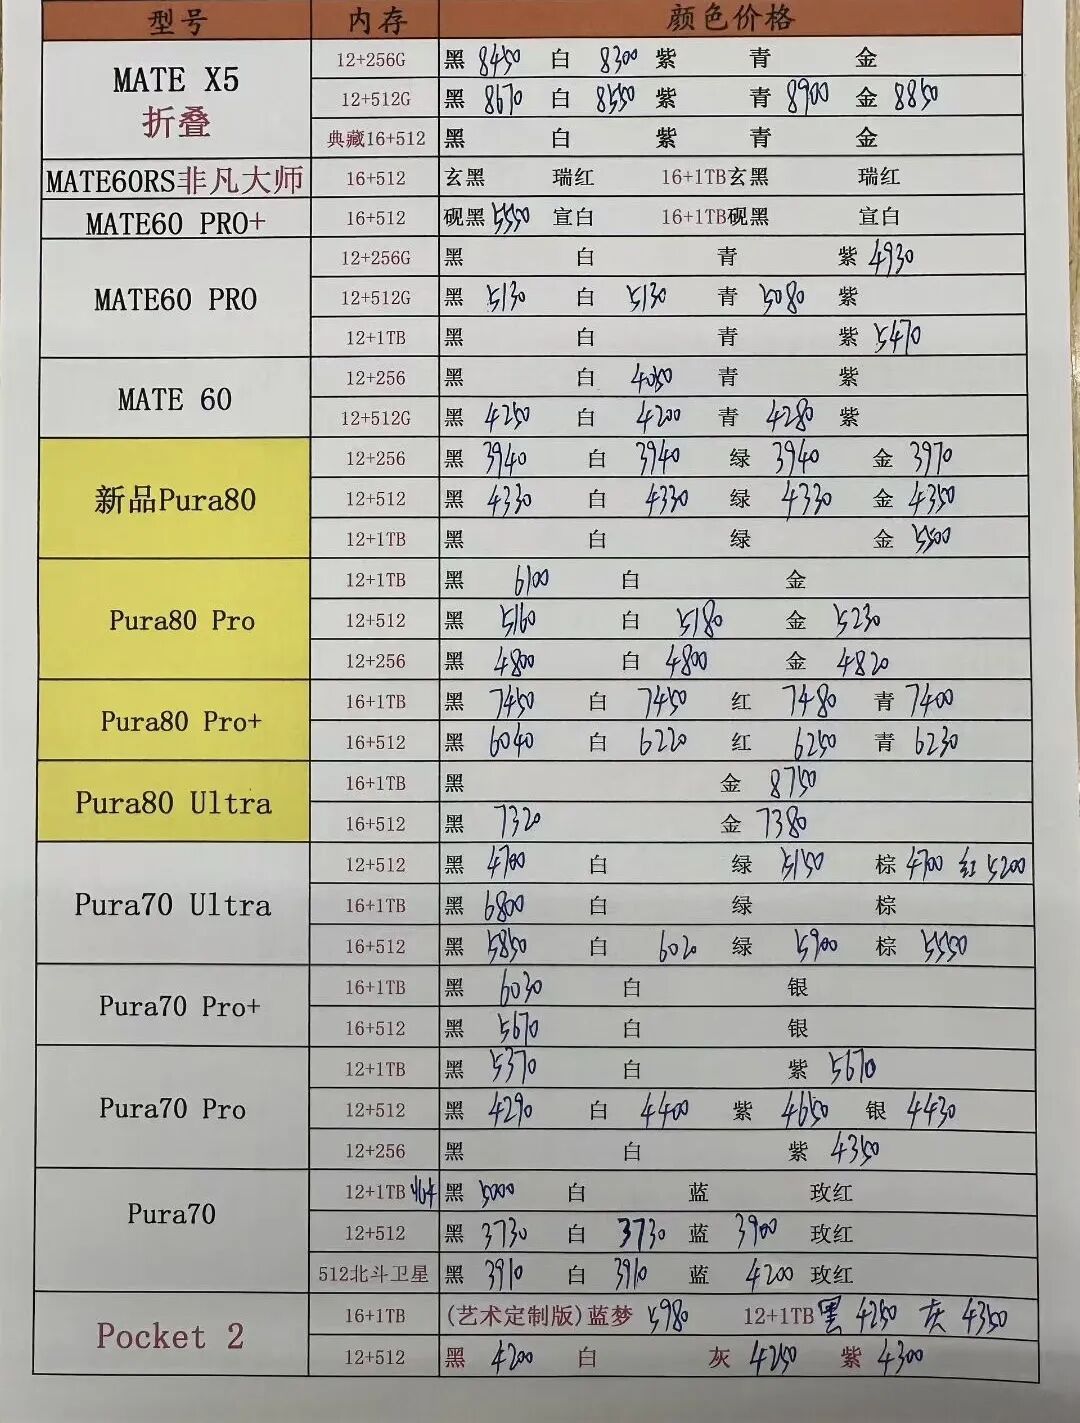 型号 内存 颜色价格
MATE X5 折叠 12+256G 黑 8450 白 8300 紫 青 金
12+512G 黑 8670 白 8550 紫 青 8900 金 8850
典藏16+512 黑 白 紫 青 金
MATE60RS非凡大师 16+512 玄黑 瑞红 16+1TB玄黑 瑞红
MATE60 PRO+ 16+512 砚黑 5550 宣白 16+1TB砚黑 宣白
MATE60 PRO 12+256G 黑 白 青 紫 4930
12+512G 黑 5130 白 5130 青 5080 紫
12+1TB 黑 白 青 紫 5470
MATE 60 12+256 黑 白 4050 青 紫
12+512G 黑 4250 白 4200 青 4280 紫
新品Pura80 12+256 黑 3940 白 3940 绿 3940 金 3970
12+512 黑 4330 白 4330 绿 4330 金 4350
12+1TB 黑 白 绿 金 5500
Pura80 Pro 12+1TB 黑 6100 白 金
12+512 黑 5160 白 5180 金 5230
12+256 黑 4800 白 4800 金 4820
Pura80 Pro+ 16+1TB 黑 7450 白 7450 红 7480 青 7400
16+512 黑 6040 白 6220 红 6250 青 6230
Pura80 Ultra 16+1TB 黑 金 8750
16+512 黑 7320 金 7380
Pura70 Ultra 12+512 黑 4700 白 绿 5150 棕 4700 红 5200
16+1TB 黑 6800 白 绿 棕
16+512 黑 5850 白 6020 绿 5900 棕 5550
Pura70 Pro+ 16+1TB 黑 6030 白 银
16+512 黑 5670 白 银
Pura70 Pro 12+1TB 黑 5370 白 紫 5670
12+512 黑 4290 白 4400 紫 4650 银 4430
12+256 黑 白 紫 4350
Pura70 12+1TB 黑 5000 白 蓝 玫红
12+512 黑 3730 白 3730 蓝 3900 玫红
512北斗卫星 黑 3910 白 3910 蓝 4200 玫红
Pocket 2 16+1TB (艺术定制版)蓝梦 5980 12+1TB 黑 4250 灰 4350
12+512 黑 4200 白 灰 4250 紫 4300